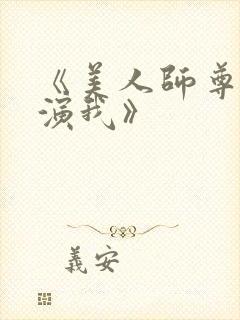 《美人師尊
演我》
義安